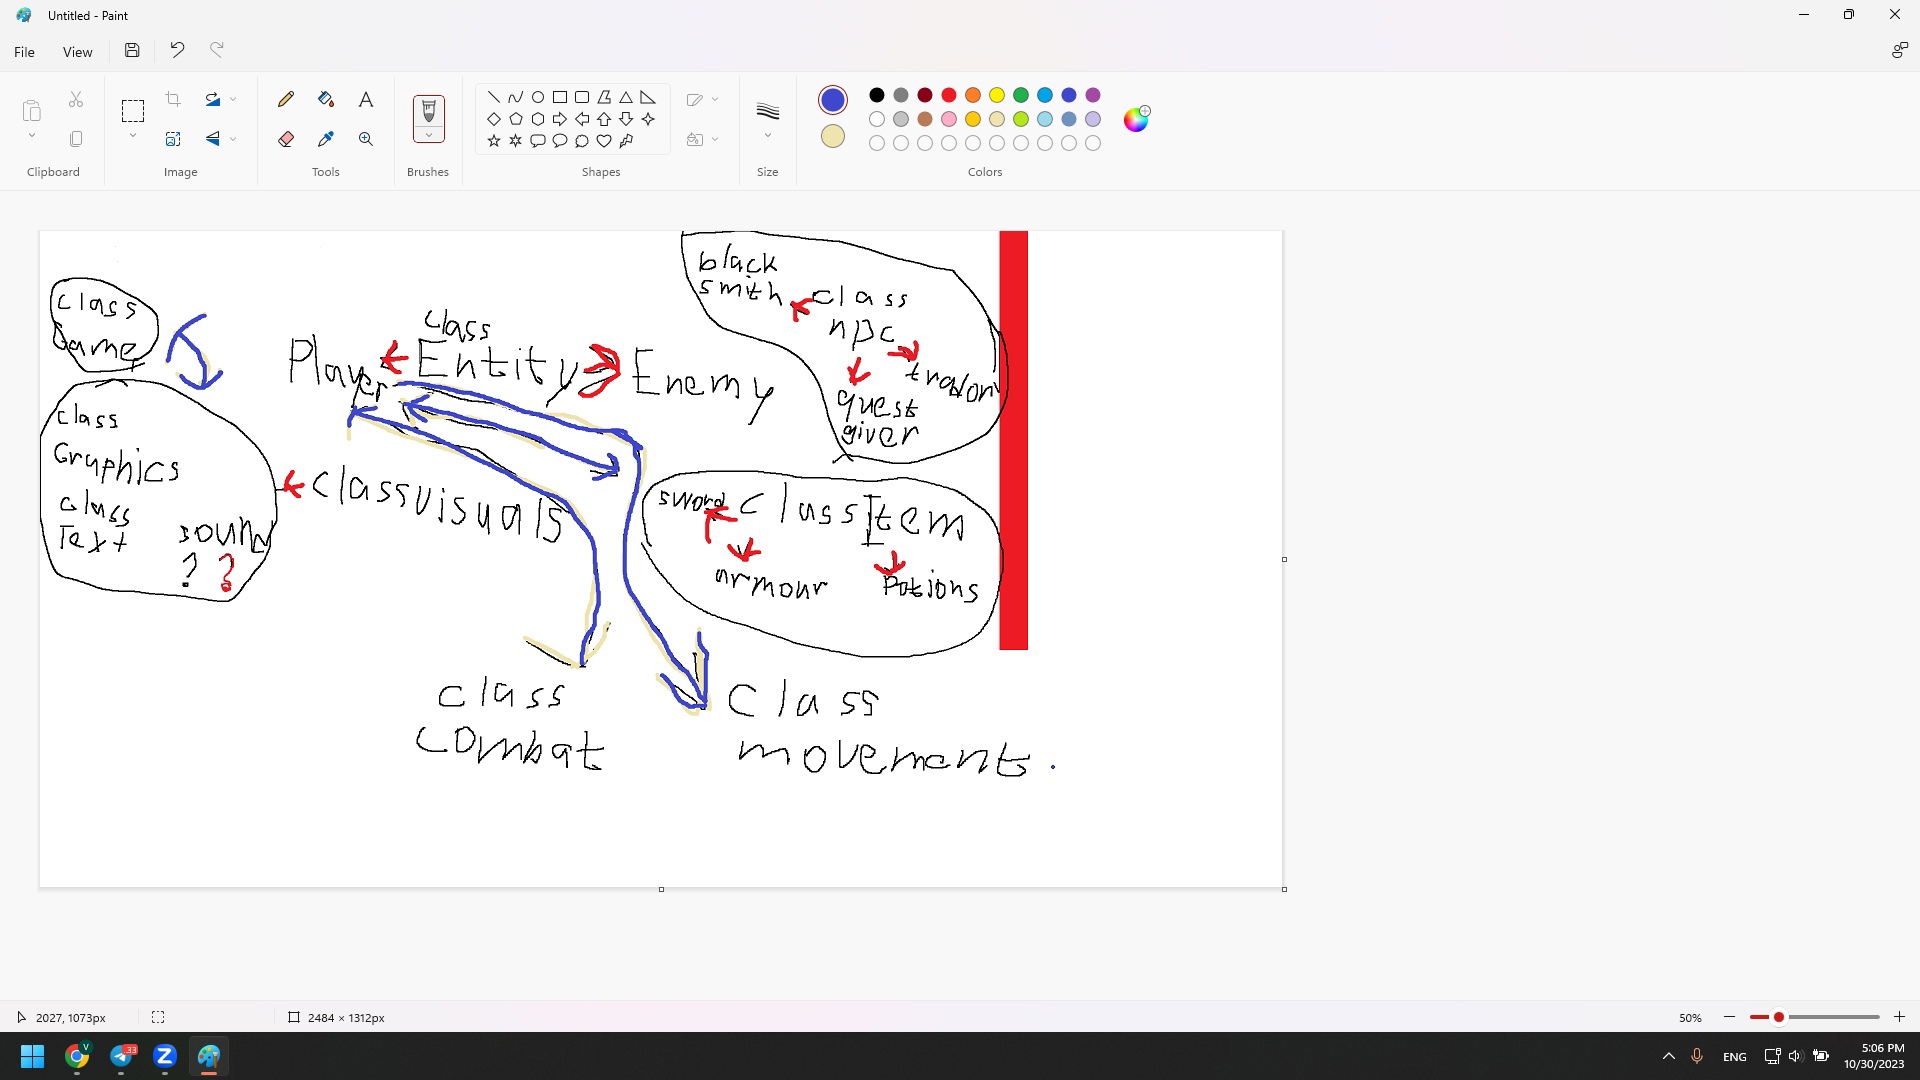 Untitled - Paint
File
View
Clipboard
Image
Tools
Brushes
Shapes
Size
Colors
class
Game
class
Graphics
class
Text
sound
? ?
class visuals
class
Player
Entity
Enemy
black
smith
class
npc
quest
giver
sword
class Item
armour
Potions
class
combat
Class
movements
2027, 1073px
2484 × 1312px
50%
V
33
Z
ENG
5:06 PM
10/30/2023